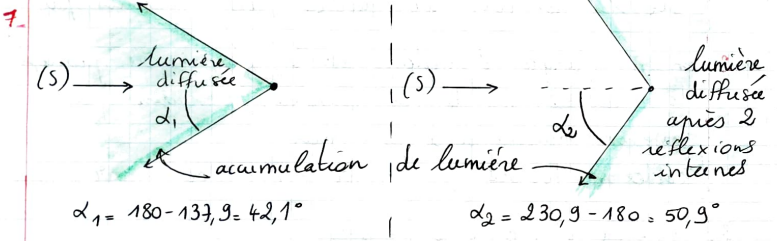 7
(S)
lumière
diffusée
α₁
accumulation de lumière
α₁ = 180-137,9 = 42,1°
(S)
α₂
lumière
diffusée
après 2
réflexions
internes
α₂ = 230,9-180 = 50,9°